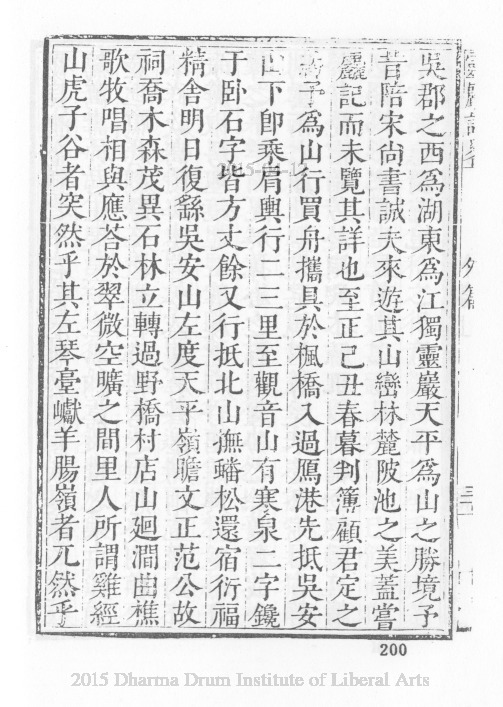 吳郡之西爲湖東爲江獨靈巖天平爲山之勝境予
昔陪宋尙書誠夫來遊其山巒林麓陂池之美蓋嘗
麤記而未覽其詳也至正己丑春暮判簿顧君定之
爲山行買舟攜具於楓橋入過鴈港先抵吳安
山下卽乘肩輿行二三里至觀音山有寒泉二字鑱
于卧石字皆方丈餘又行抵北山撫蟠松還宿衍福
精舍明日復繇吳安山左度天平嶺瞻文正范公故
祠喬木森茂異石林立轉過野橋村店山廻澗曲樵
歌牧唱相與應荅於翠微空曠之間里人所謂雞經
山虎子谷者突然乎其左琴臺巘羊腸嶺者兀然乎
外篇
200
2015 Dharma Drum Institute of Liberal Arts